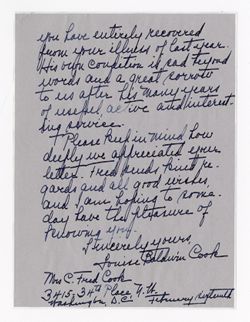 you have entirely recovered
from your illness of last year.
His own condition is sad beyond
words and a great sorrow
to us after his many years
of useful, active and interest-
ing service.
Please keep in mind how
deeply we appreciated your
letter. Fred sends kind re-
gards and all good wishes,
and I am hoping to some-
day have the pleasure of
knowing you.
Sincerely yours,
Louise Baldwin Cook
Mrs C. Fred Cook
3415, 34th Place N.W.
Washington, D.C. February